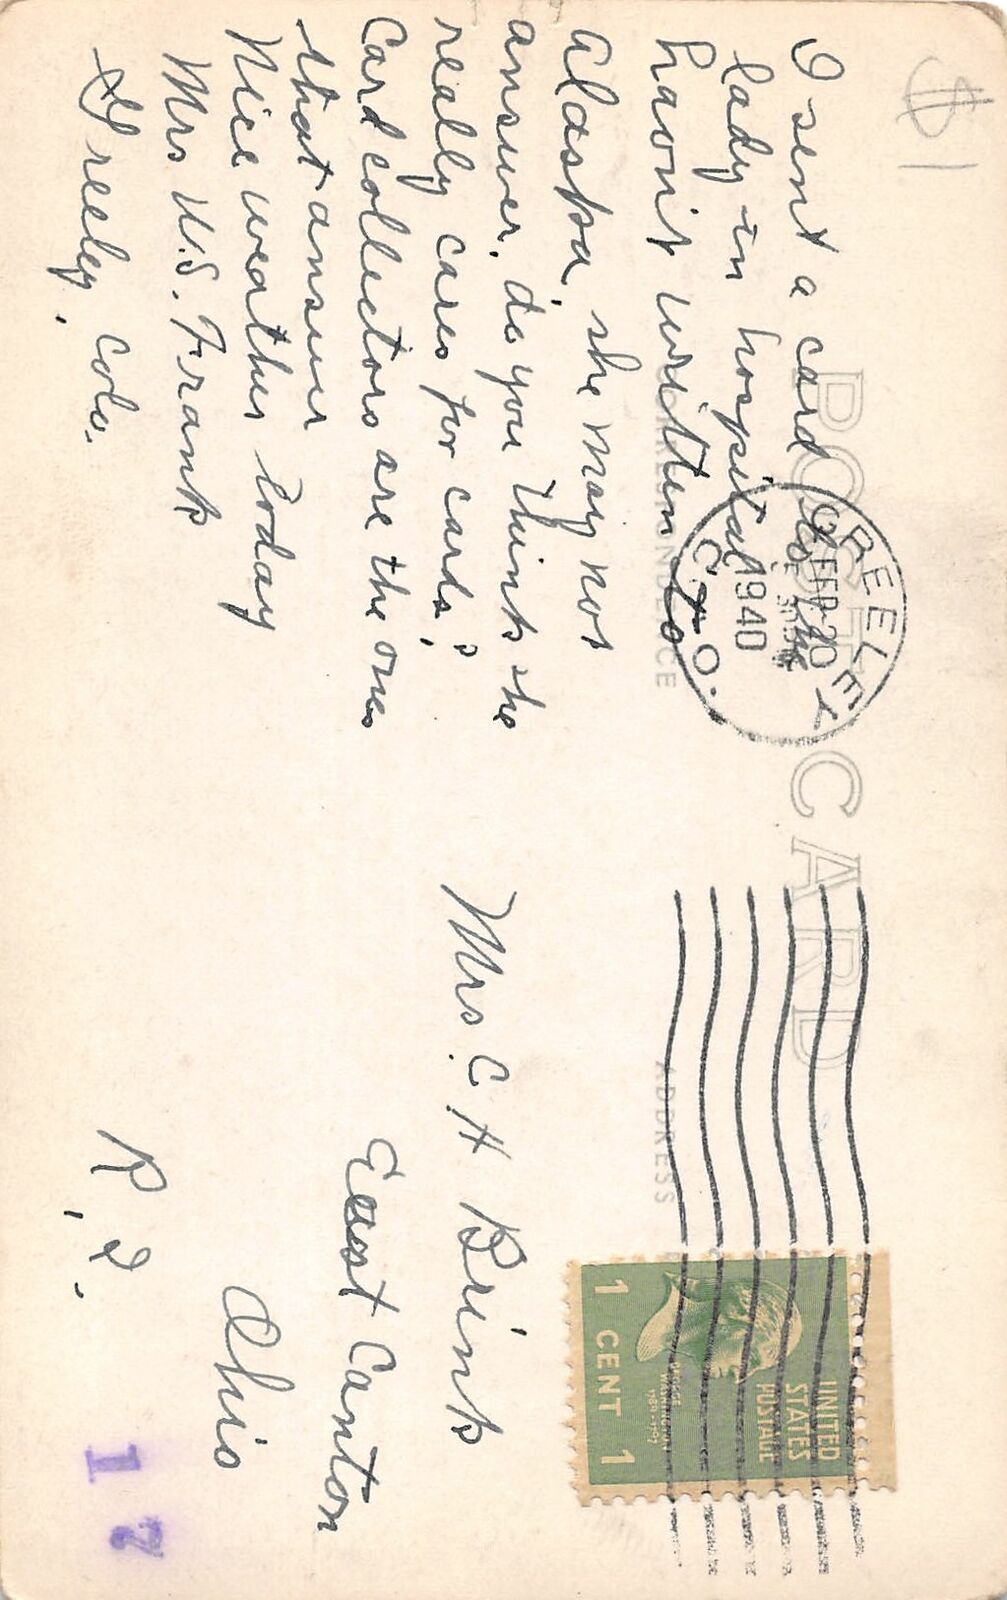 $1
POST CARD
CORRESPONDENCE
ADDRESS
GREELEY
FEB 20
1940
COLO.
UNITED
STATES
POSTAGE
GEORGE
WASHINGTON
1789-1797
1 CENT 1
I sent a card to the
lady in hospital
havnit written to
Alaska, she may not
answer, do you think she
really cares for cards?
Card collectors are the ones
that answer
Nice weather today
Mrs W.S. Frank
Greeley, Colo.
Mrs. C H Brink
East Canton
Ohio
R, 2.
1 7